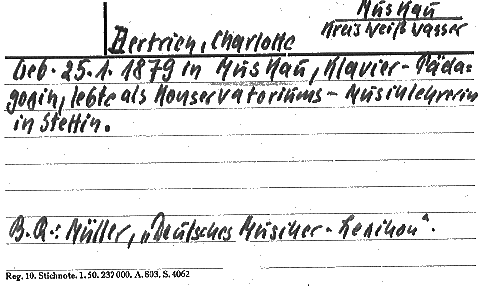 Muskau
Kreis Weißwasser
Hertrich, Charlotte
Geb. 25.1.1879 in Muskau, Klavier-Päda=
gogin, lebte als Konservatoriums-Musiklehrerin
in Stettin.
B.Q.: Müller, „Deutsches Musiker-Lexikon“.
Reg. 10. Stichnote. 1. 50. 232 000. A. 803. S. 4062